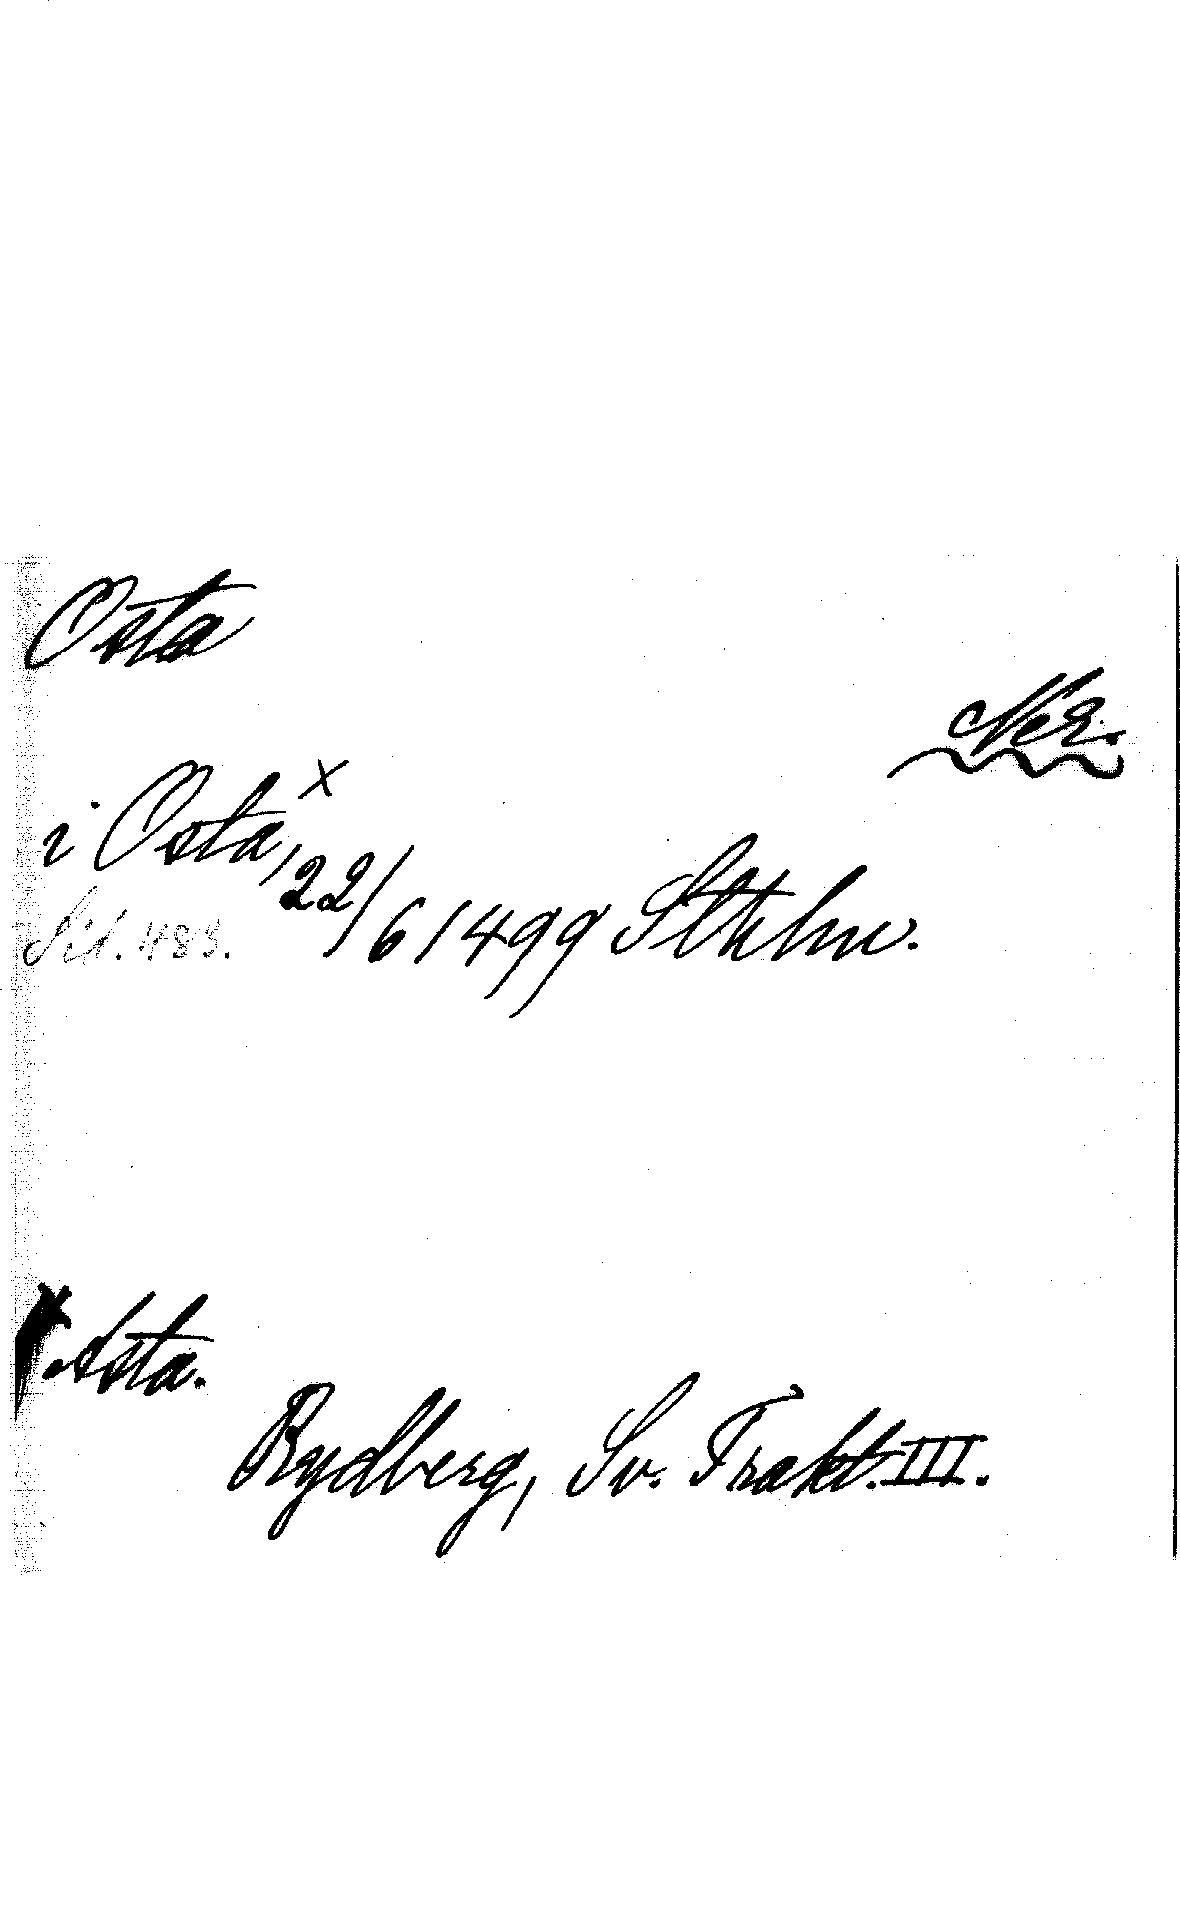 Osta
Ner.
i Osta,ˣ 22/6 1499 Sthlm.
Sid. 483.
x Asta.
Rydberg, Sv. Trakt. III.